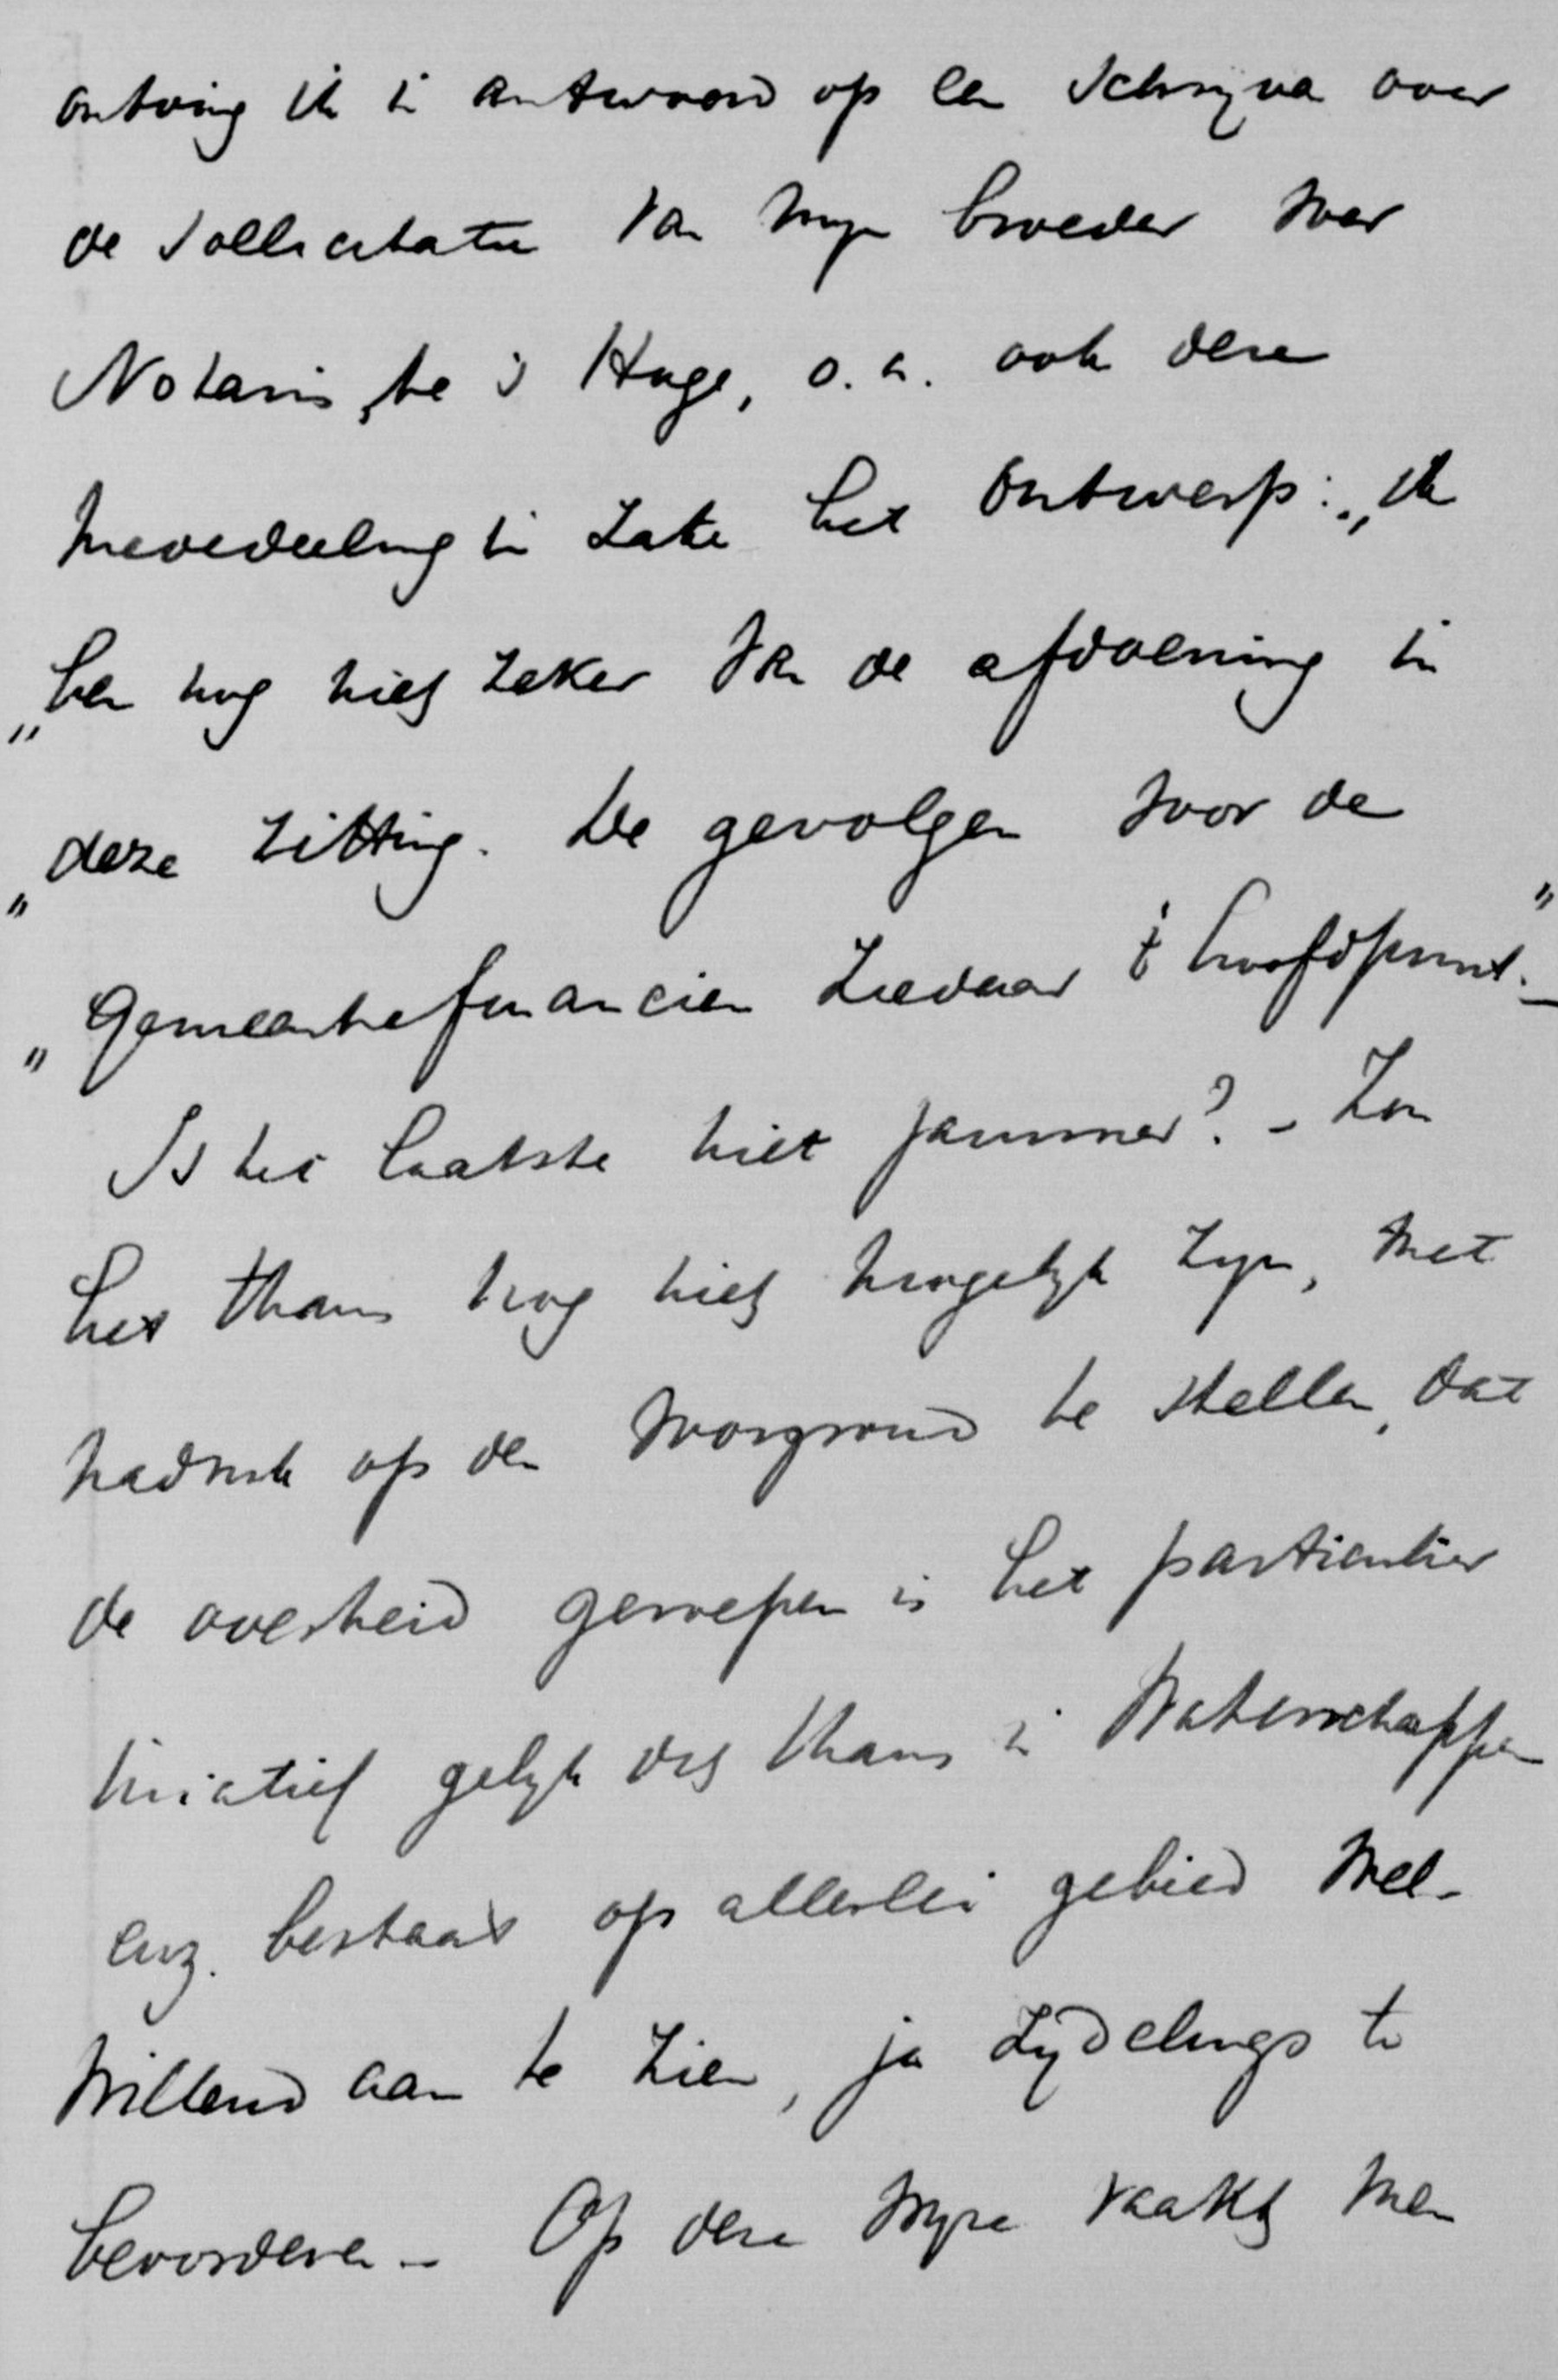 ontving ik in antwoord op een schrijven over
de sollicitatie van mijn broeder voor
Notaris te 's Hage, o.a. ook deze
mededeeling in zake het ontwerp: „Ik
„ben nog niet zeker van de afdoening in
„deze zitting. De gevolgen voor de
„Gemeentefinancien ziedaar 't hoofdpunt."
Is het laatste niet jammer? – Zou
het thans nog niet mogelijk zijn, met
nadruk op den voorgrond te stellen, dat
de overheid geroepen is het particulier
iniatief gelijk dit thans in Waterschappen
enz. bestaat op allerlei gebied wel-
willend aan te zien, ja zijdelings te
bevorderen – Op deze wijze raakt men